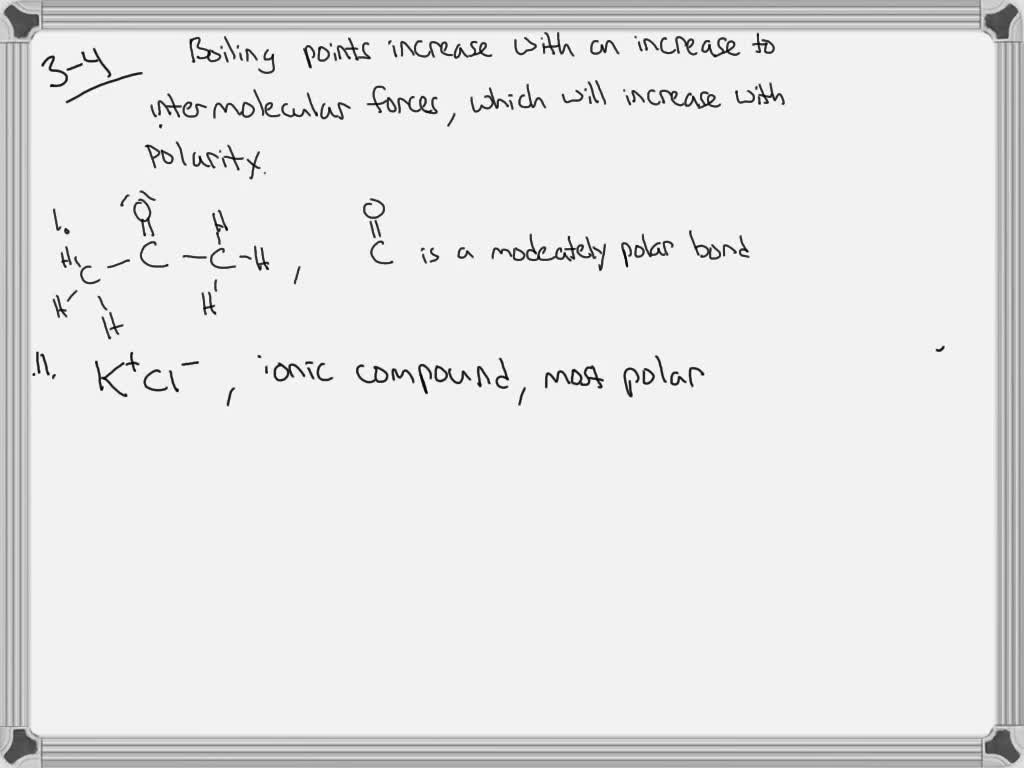 3-4
Boiling points increase with an increase to
intermolecular forces, which will increase with
polarity.
I.
O
H
H C - C - C - H ,
H H H
O
C is a modeately polar bond
II. K+ Cl- , ionic compound, most polar